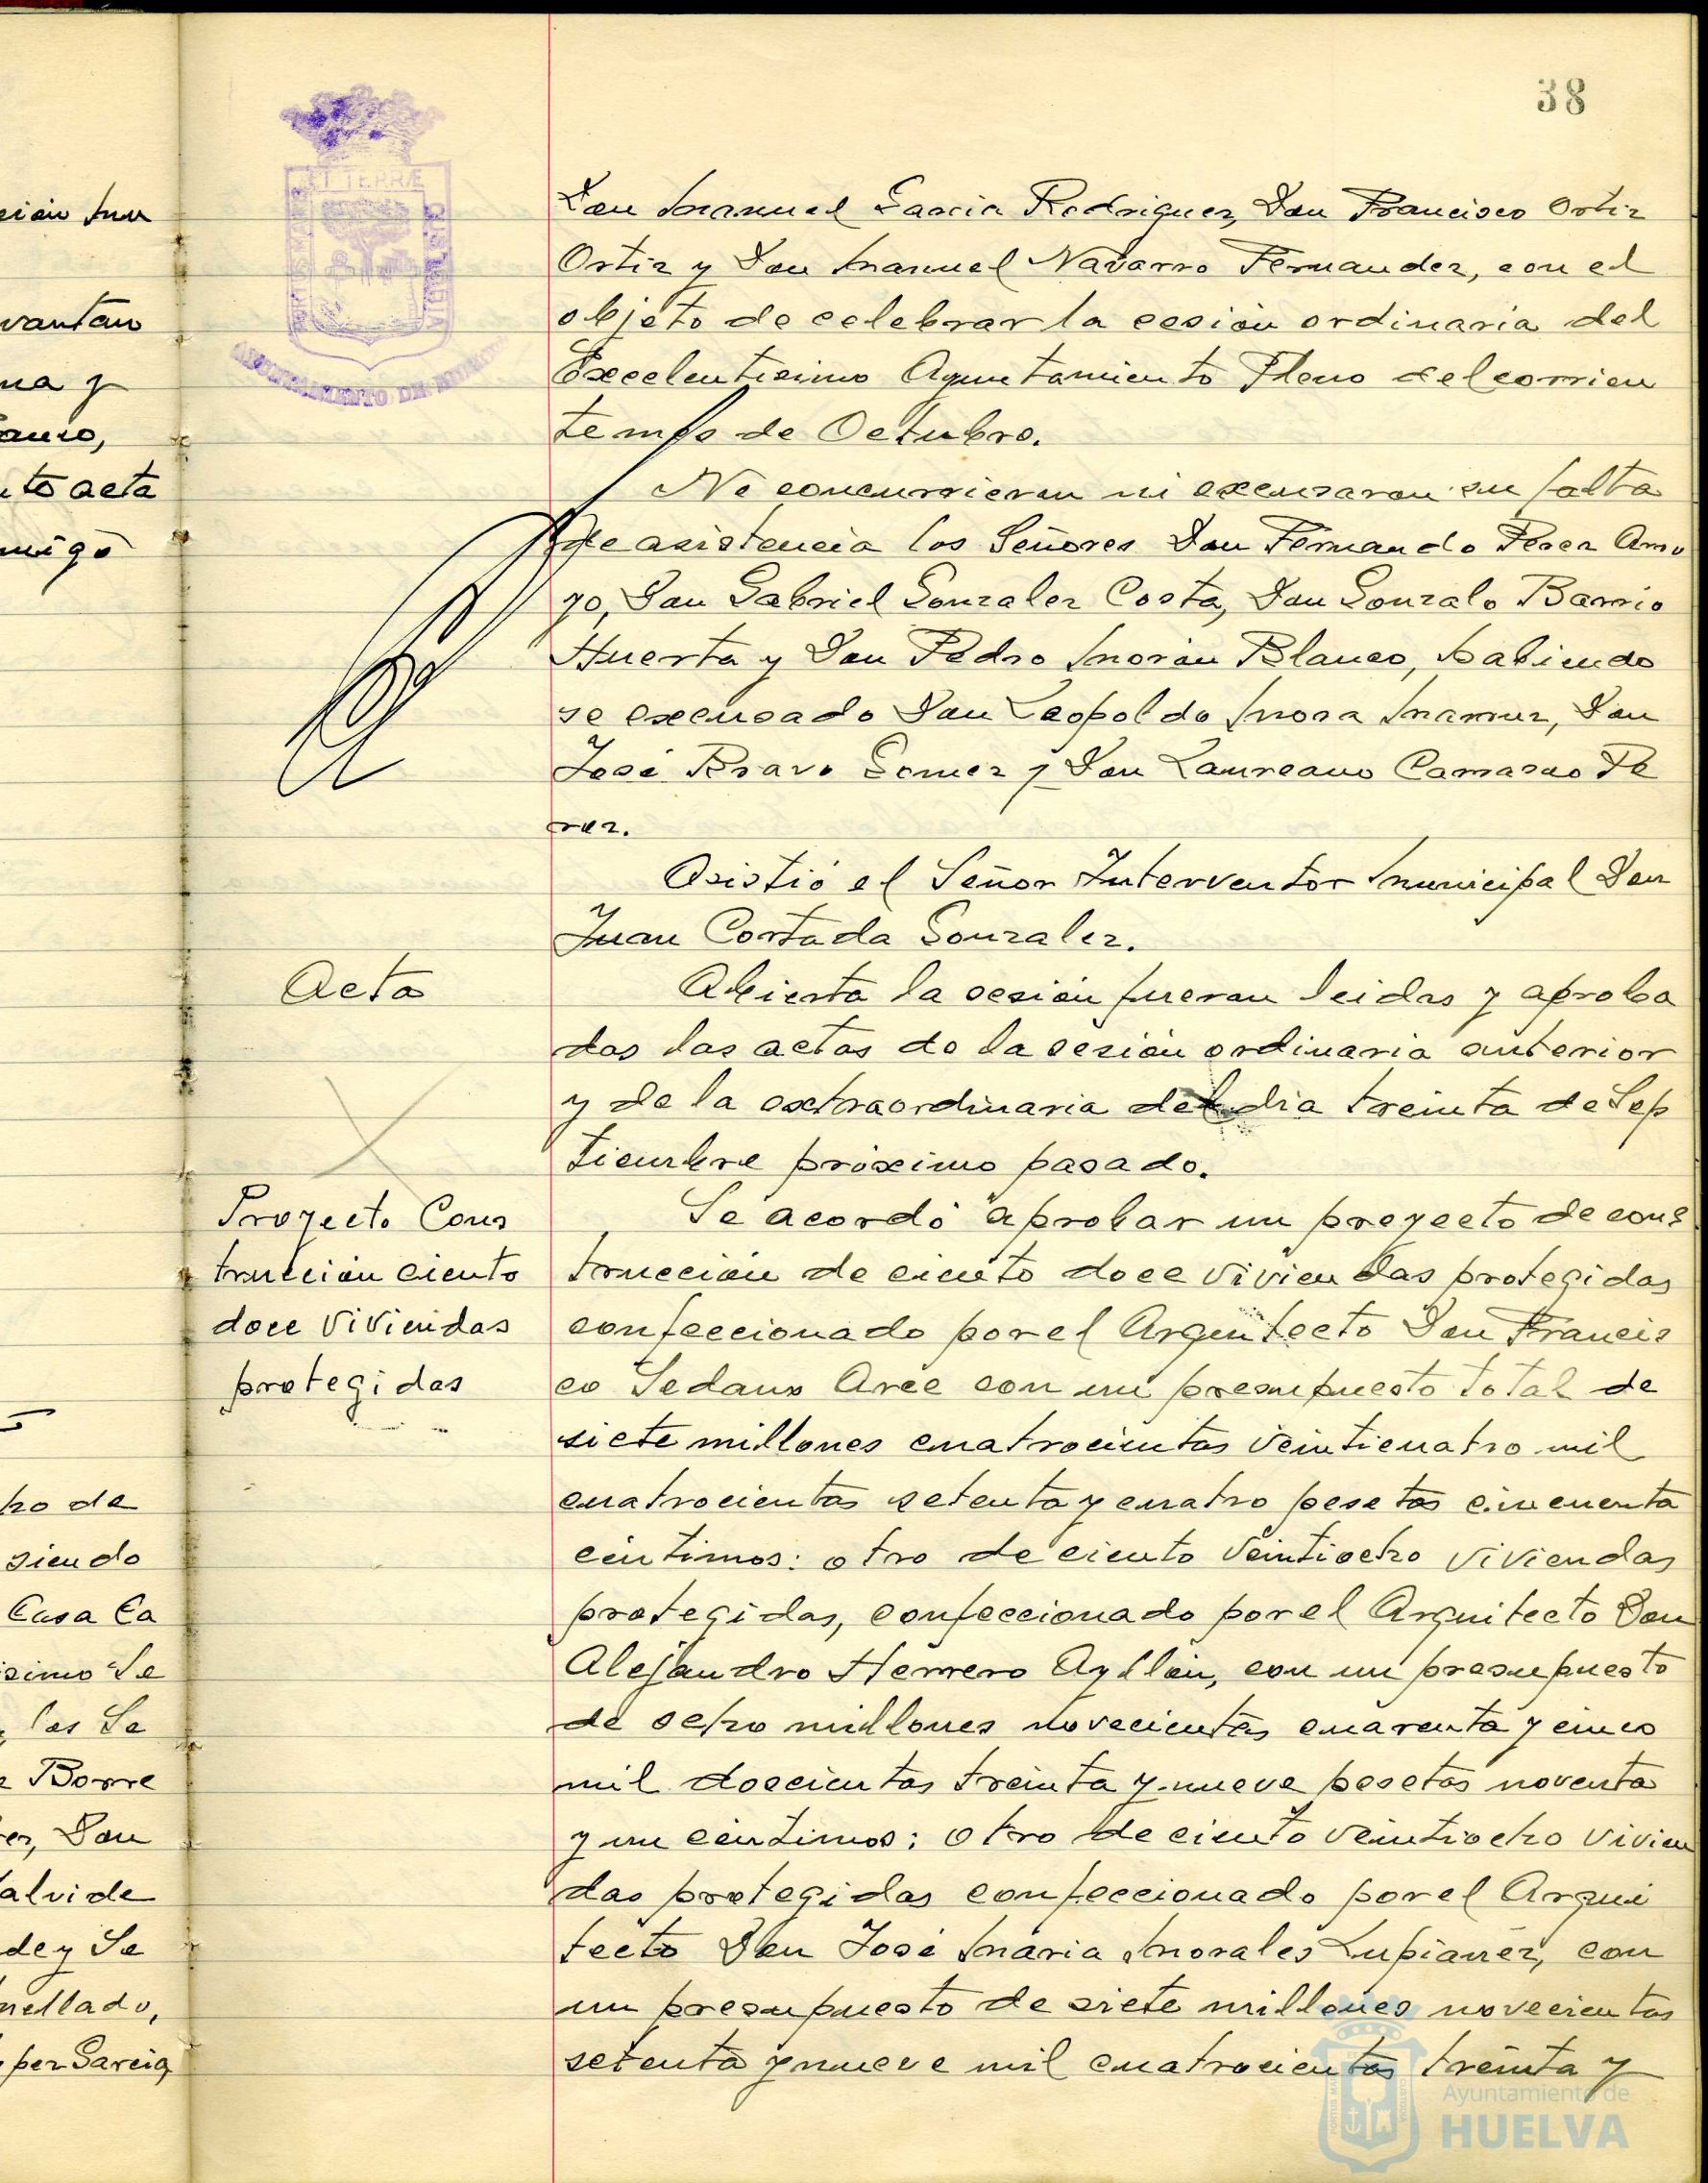 38
Don Manuel Garcia Rodriguez, Don Francisco Ortiz
Ortiz y Don Manuel Navarro Fernandez, con el
objeto de celebrar la sesión ordinaria del
Excelentisimo Ayuntamiento Pleno del corrien
te mes de Octubre.
No concurrieron ni excusaron su falta
de asistencia los Señores Don Fernando Perez Amo
yo, Don Gabriel Gonzalez Costa, Don Gonzalo Barrio
Huerta y Don Pedro Morón Blanco, habiendo
se excusado Don Leopoldo Mora Don
José Bravo Gomez y Don Laureano Camacho Pe
rez.
Asistió el Señor Interventor Municipal Don
Juan Cortada Gonzalez.
Acta
Abierta la sesión fueron leidas y aproba
das las actas de la sesión ordinaria anterior
y de la extraordinaria del dia treinta de Sep
tiembre próximo pasado.
Proyecto Cons
trucción ciento
doce viviendas
protegidas
Se acordó aprobar un proyecto de cons
trucción de ciento doce viviendas protegidas
confeccionado por el Arquitecto Don Francis
co Sedano Arce con un presupuesto total de
siete millones cuatrocientas veinticuatro mil
cuatrocientas setenta y cuatro pesetas cincuenta
céntimos: otro de ciento veintiocho viviendas
protegidas, confeccionado por el Arquitecto Don
Alejandro Herrero Ayllón, con un presupuesto
de ocho millones novecientas cuarenta y cinco
mil doscientas treinta y nueve pesetas noventa
y un céntimos; otro de ciento veintiocho vivien
das protegidas confeccionado por el Arqui
tecto Don José Maria Morales Lupiañez, con
un presupuesto de siete millones novecientas
setenta y nueve mil cuatrocientas treinta y
ción
vantan
na y
to acta
migo
ho de
siendo
Casa Ca
simo Se
los Se
Borre
ez, Don
alvide
de y Se
mellado,
per Garcia,
ET TERRÆ
AYUNTAMIENTO DE HUELVA
Ayuntamiento de
HUELVA